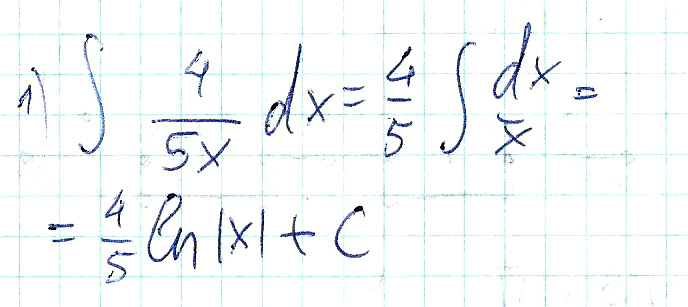 1) ∫ 4/(5x) dx = 4/5 ∫ dx/x =
= 4/5 ln|x| + C